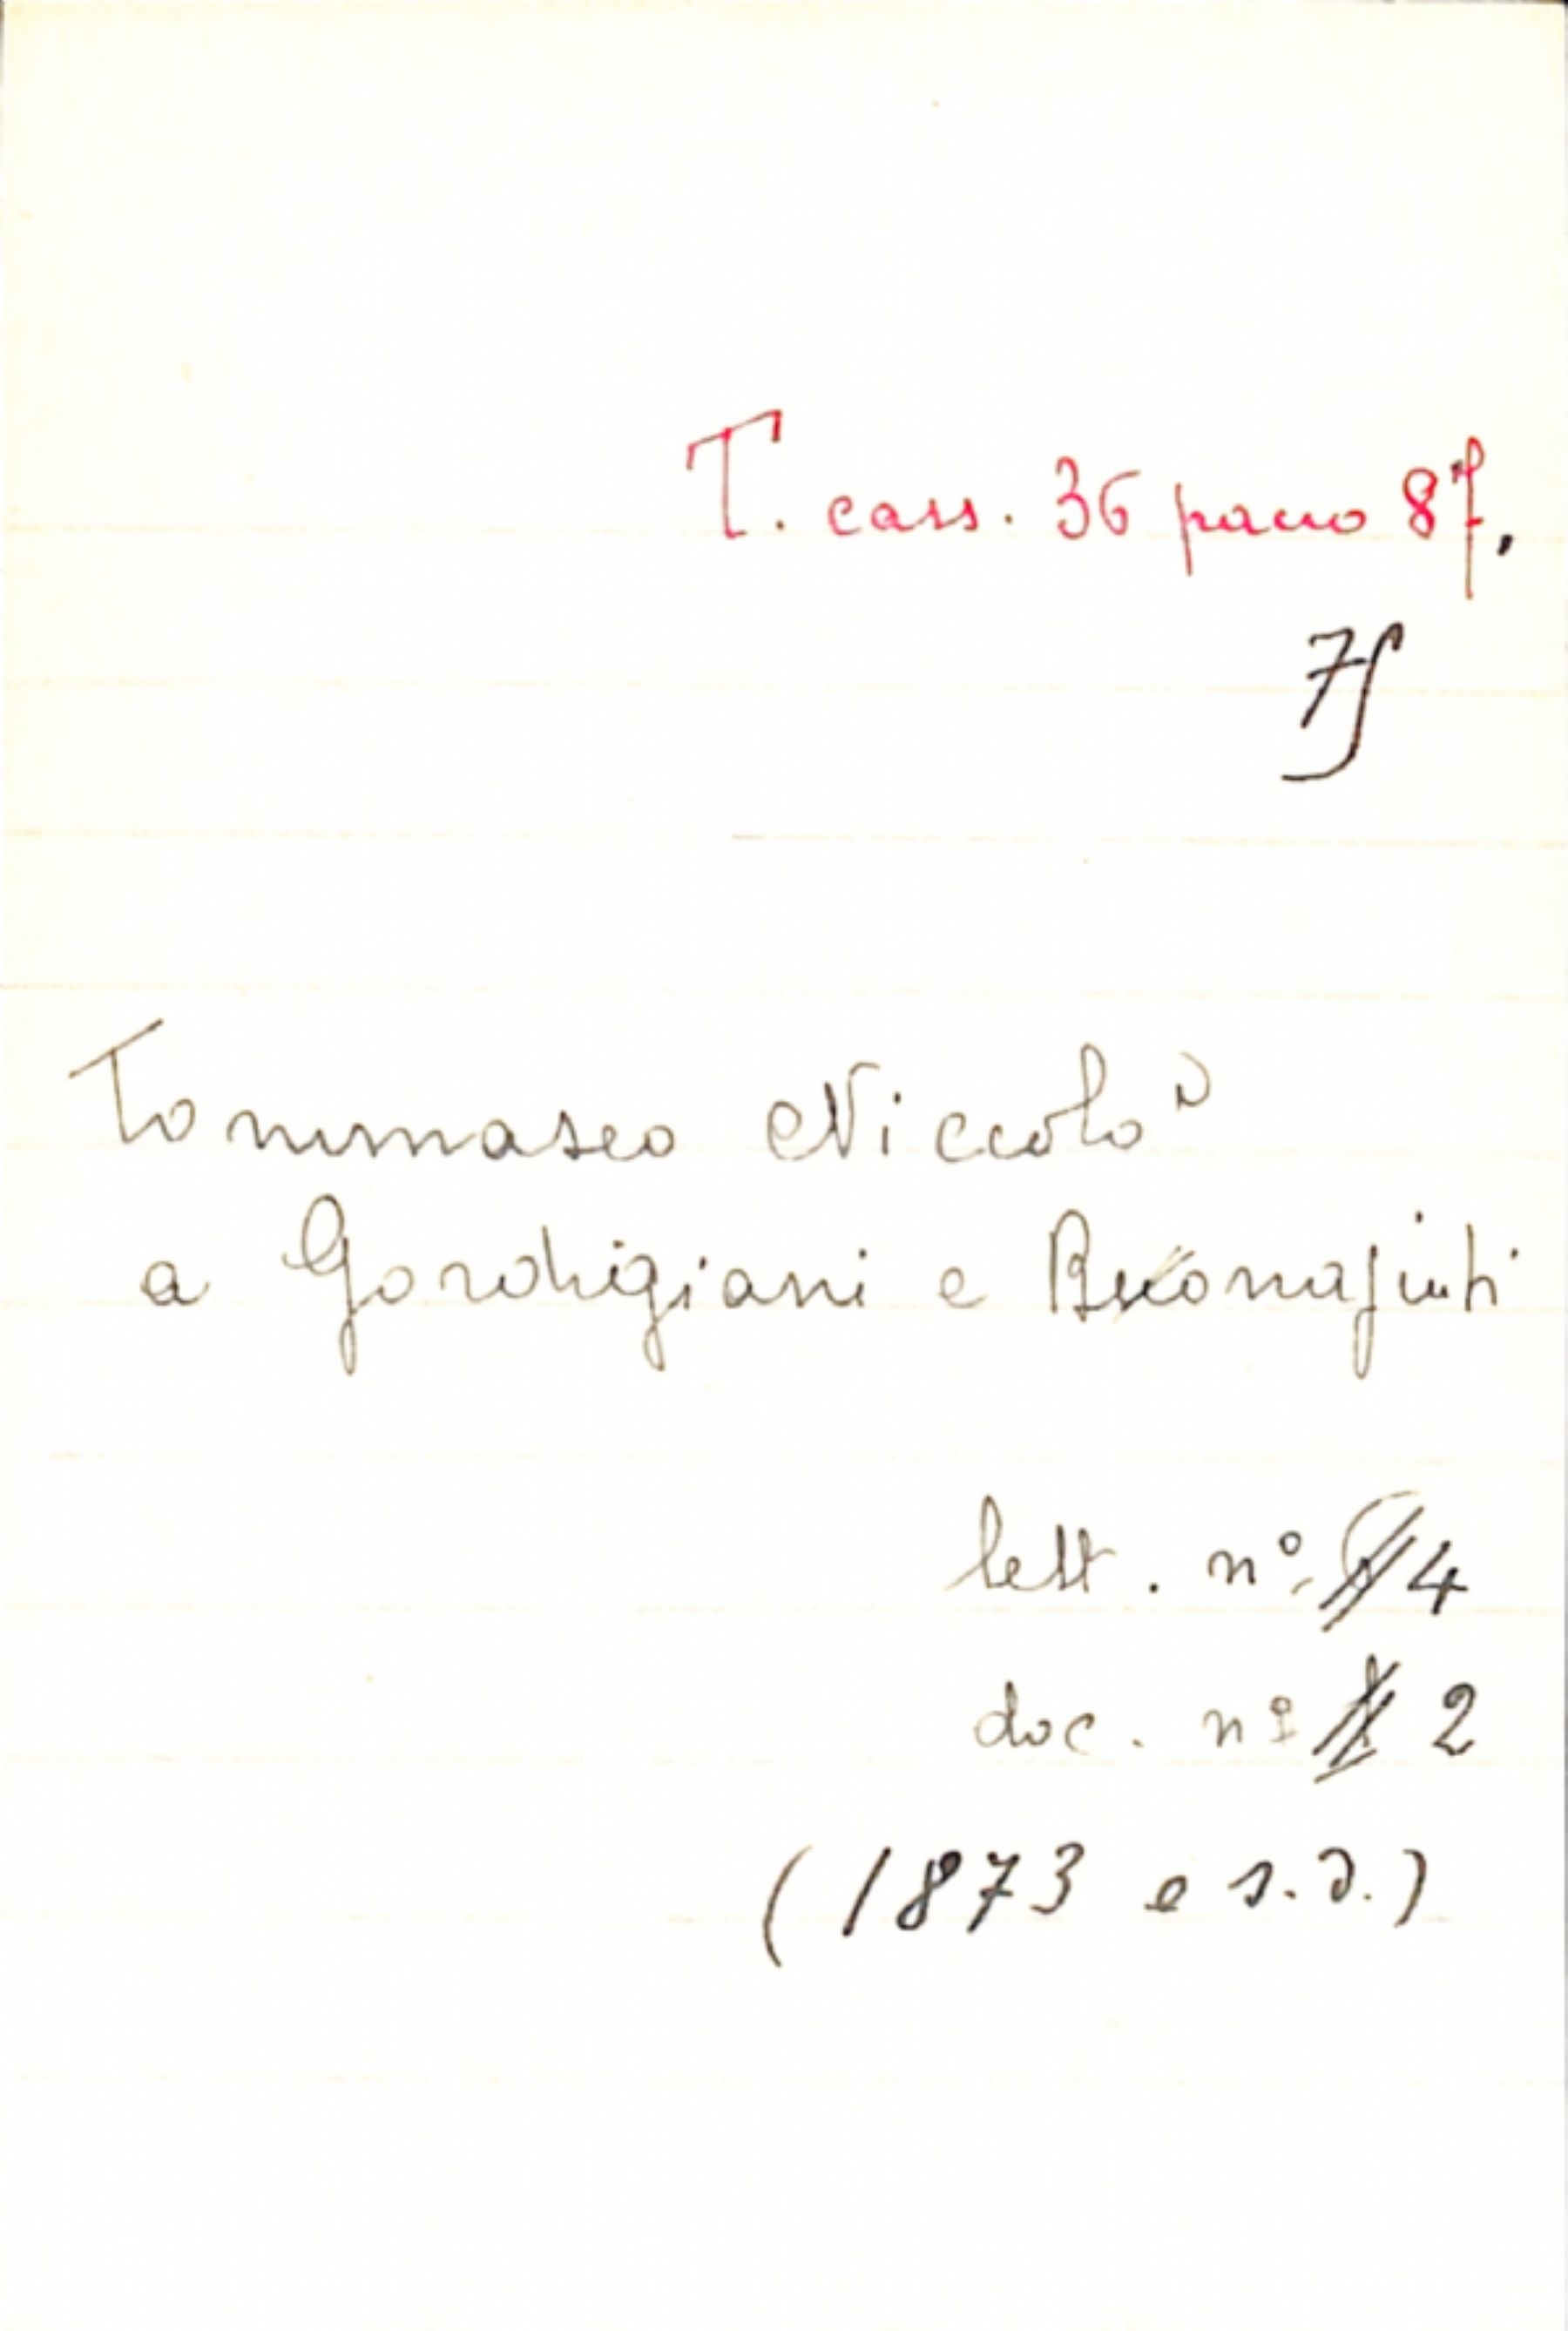 T. cass. 36 pacco 87,
75
Tommaseo Niccolò
a Gordigiani e Buonajuti
lett. n° 4
doc. n° 2
(1873 e s.d.)